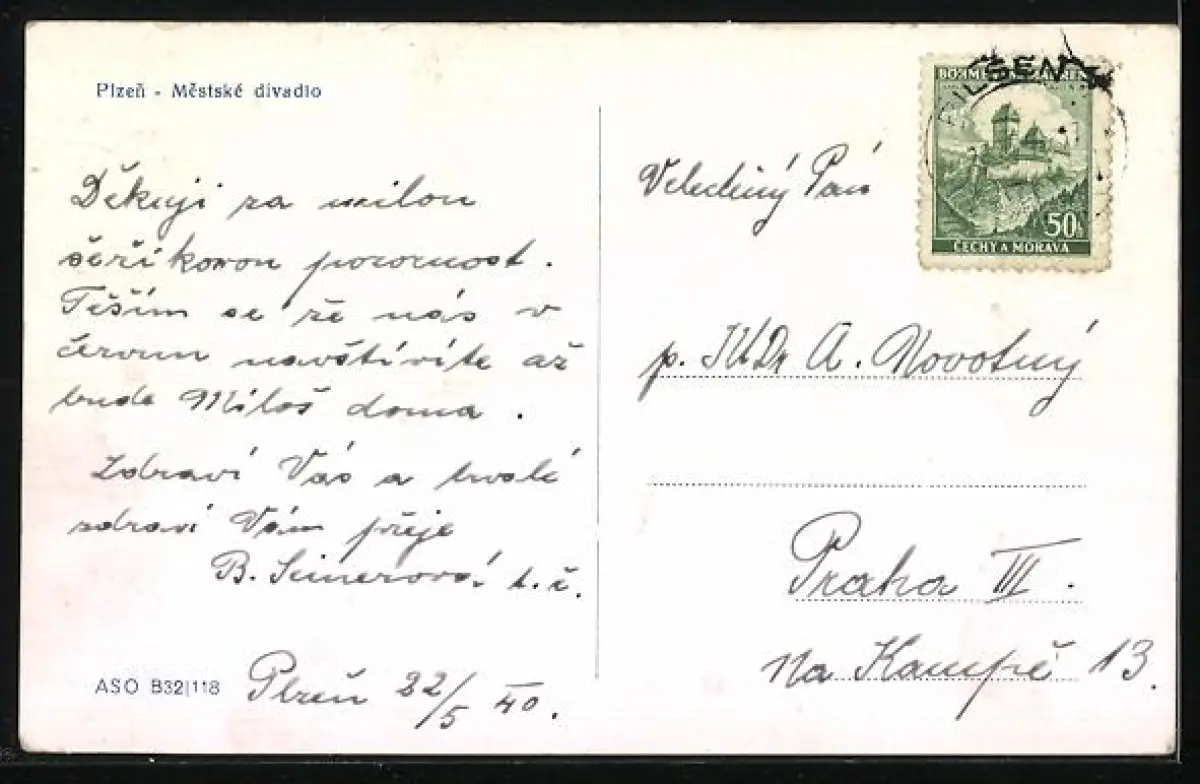 Plzeň - Městské divadlo
Děkuji za milou
šeříkovou pozornost.
Těším se že nás v
červnu navštívíte až
bude Miloš doma.
Zdraví Vás a trvalé
zdraví Vám přeje
B. t.č.
ASO B32|118
Plzeň 22/5 40.
BÖHMEN UND MÄHREN
50h
ČECHY A MORAVA
PILSEN
Velectěný Pán
p. A. Novotný
Praha III.
Na Kampě 13.